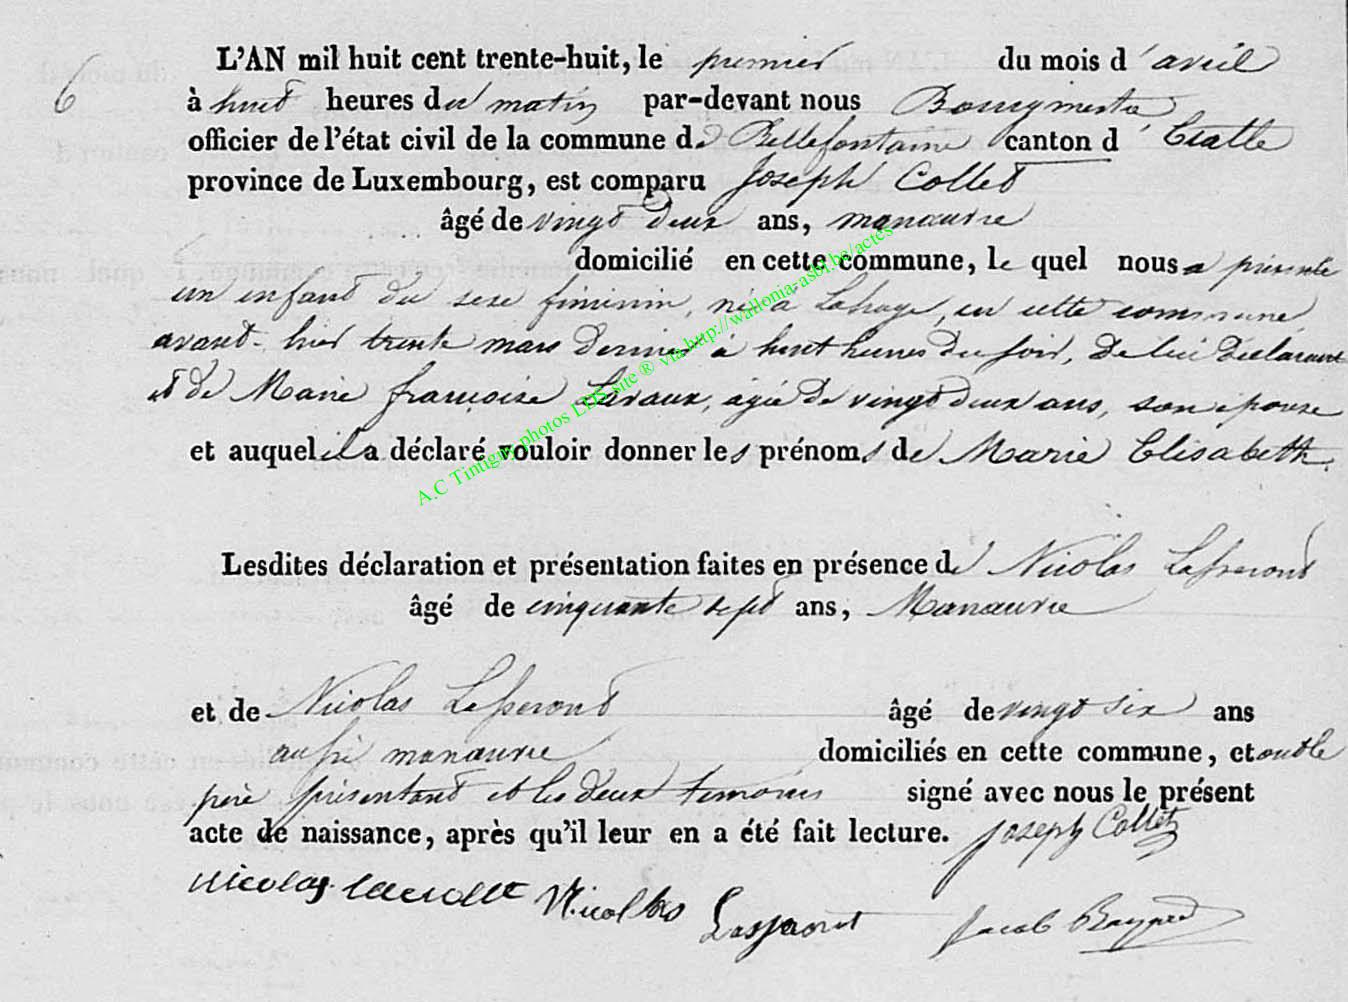 6
L'AN mil huit cent trente-huit, le premier du mois d'avril
à huit heures du matin par-devant nous Bourgmestre
officier de l'état civil de la commune de Bellefontaine canton d'Etalle
province de Luxembourg, est comparu Joseph Collet
âgé de vingt deux ans, manœuvre
domicilié en cette commune, le quel nous a présenté
un enfant du sexe féminin, né à Lahage, en cette commune,
avant-hier trente mars dernier à huit heures du soir, de lui déclarant
et de Marie françoise Lavaux, âgée de vingt deux ans, son épouse
et auquel il a déclaré vouloir donner les prénoms de Marie Elisabeth.
Lesdites déclaration et présentation faites en présence de Nicolas
âgé de cinquante sept ans, Manœuvre
et de Nicolas âgé de vingt six ans
aussi manœuvre domiciliés en cette commune, et ont le
père présentant et les deux témoins signé avec nous le présent
acte de naissance, après qu'il leur en a été fait lecture. Joseph Collet
Nicolas Nicollas
Jacob
A.C Tintigny photos LDS site ® via http://wallonia-asbl.be/actes